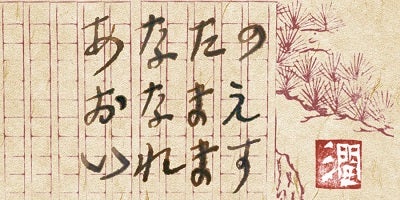 あなたの
おなまえ
いれます
潤